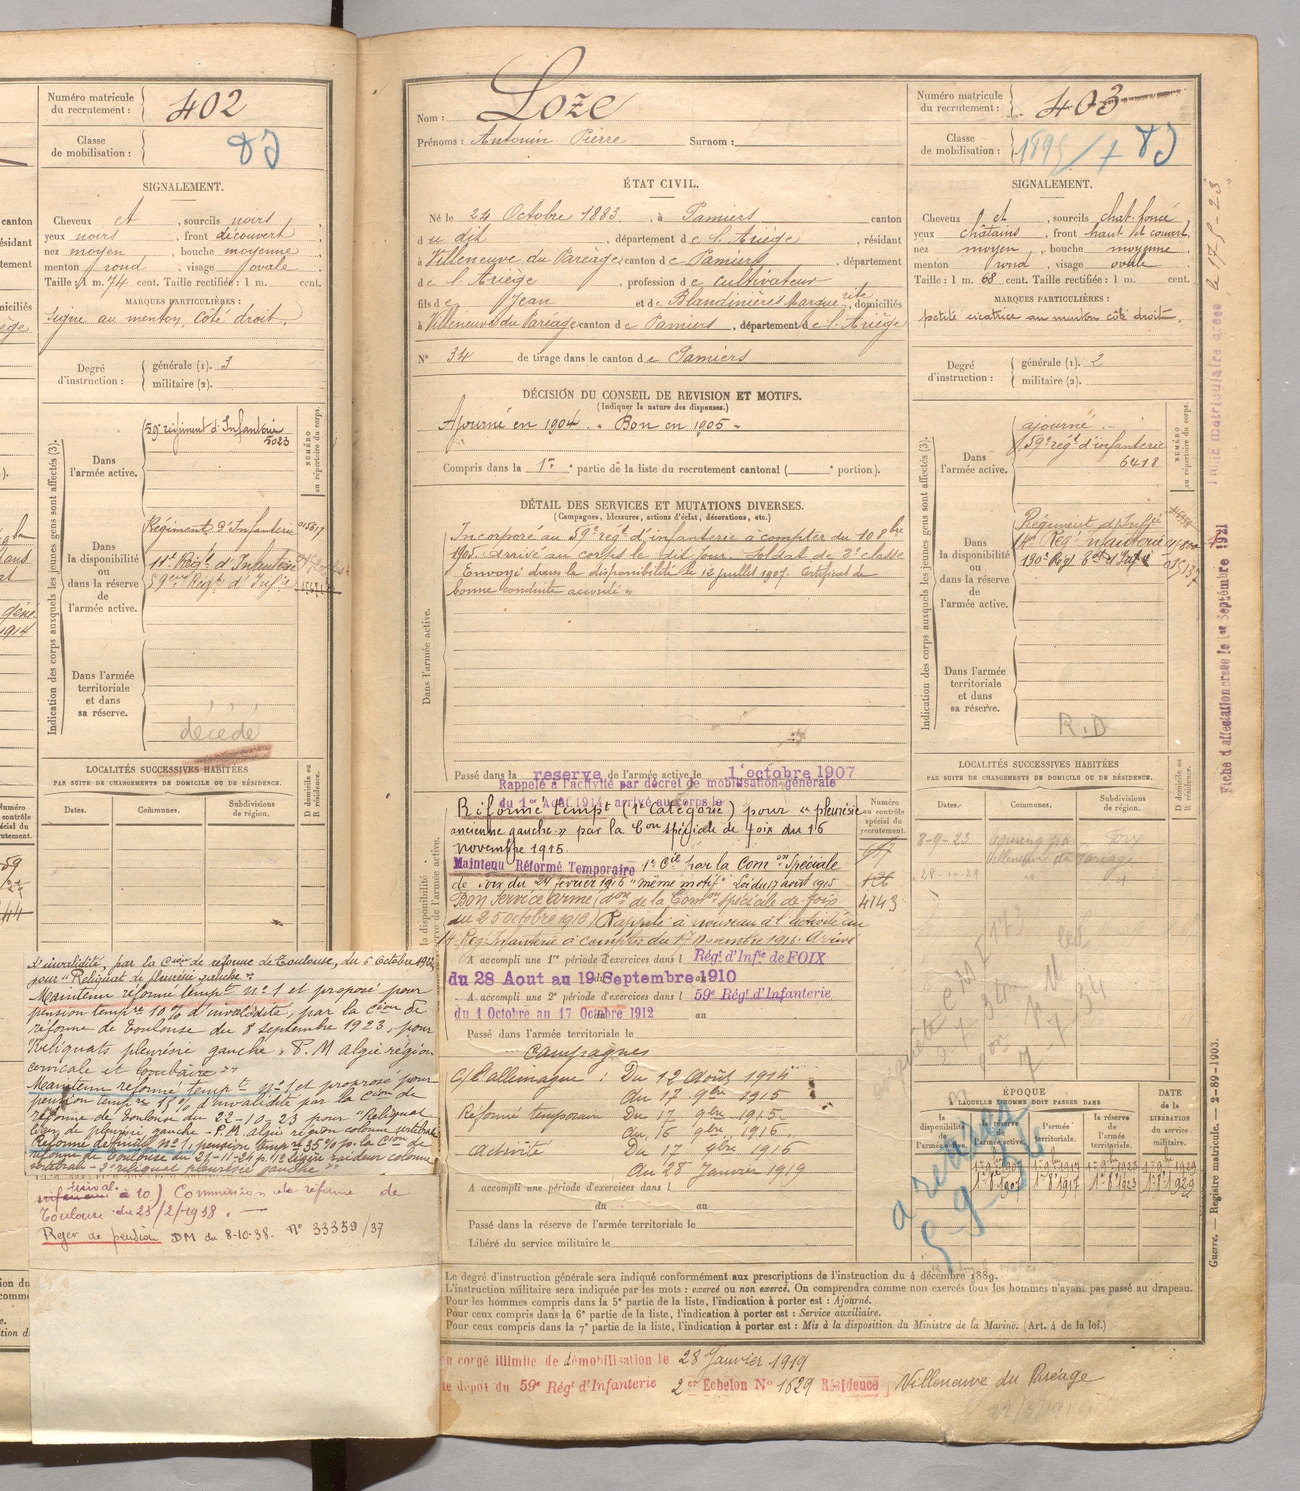 Numéro matricule du recrutement : 402
Classe de mobilisation :
SIGNALEMENT.
Cheveux et, sourcils noirs
yeux noirs, front découvert
nez moyen, bouche moyenne
menton rond, visage ovale
Taille : 1 m. 74 cent. Taille rectifiée : 1 m. cent.
MARQUES PARTICULIÈRES :
signe au menton, côté droit.
Degré d'instruction :
générale (1). 3
militaire (2).
Indication des corps auxquels les jeunes gens sont affectés (3).
NUMÉRO au répertoire du corps.
Dans l'armée active.
59e régiment d'Infanterie
5023
Dans la disponibilité ou dans la réserve de l'armée active.
Régiment d'Infanterie
11e Régt d'Infanterie
59eme Régt d'Infie
Dans l'armée territoriale et dans sa réserve.
décédé
LOCALITÉS SUCCESSIVES HABITÉES
PAR SUITE DE CHANGEMENTS DE DOMICILE OU DE RÉSIDENCE.
D domicile ou R résidence.
Dates.
Communes.
Subdivisions de région.
Nom : Loze
Prénoms : Antonin Pierre Surnom :
ÉTAT CIVIL.
Né le 24 Octobre 1883, à Pamiers canton
du dit, département de l'Ariège, résidant
à Villeneuve du Paréage, canton de Pamiers, département
de l'Ariège, profession de cultivateur
fils de Jean et de Blandinières Marguerite, domiciliés
à Villeneuve du Paréage canton de Pamiers, département de l'Ariège
N° 34 de tirage dans le canton de Pamiers
DÉCISION DU CONSEIL DE REVISION ET MOTIFS.
(Indiquer la nature des dispenses.)
Ajourné en 1904. - Bon en 1905 -
Compris dans la 1re partie de la liste du recrutement cantonal ( e portion).
DÉTAIL DES SERVICES ET MUTATIONS DIVERSES.
(Campagnes, blessures, actions d'éclat, décorations, etc.)
Dans l'armée active.
Incorporé au 59e régt d'infanterie à compter du 10 8bre
1905. Arrivé au corps le dit jour. Soldat de 2e classe
Envoyé dans la disponibilité le 12 juillet 1907. Certificat de
bonne conduite accordé
Passé dans la reserve de l'armée active le 1 octobre 1907
Rappelé à l'activité par décret de mobilisation générale
du 1er Août 1914, arrivé au corps le
Réformé tempt (1e Catégorie) pour "pleurésie
ancienne gauche" par la Con spéciale de Foix du 16
novembre 1915
Maintenu Réformé Temporaire 1e Cie par la Comon Spéciale
de Foix du 24 février 1916 "même motif" Loi du 17 août 1915
Bon Service Armé (don de la Comon spéciale de Foix
du 25 octobre 1916) Rappelé à nouveau à l'activité au
14e Reg. Infanterie à compter du 17 Novembre 1916. Arrivé
A accompli une 1re période d'exercices dans l Régt d'Infie de FOIX
du 28 Aout au 19 Septembre 1910
A accompli une 2e période d'exercices dans l 59e Régt d'Infanterie
du 1 Octobre au 17 Octobre 1912
Passé dans l'armée territoriale le
Campagnes
C/ l'allemagne : Du 12 Août 1914
au 17 9bre 1915
Réformé temporaire Du 17 9bre 1915
au 16 9bre 1916
Activité Du 17 9bre 1916
Au 28 Janvier 1919
A accompli une période d'exercices dans l
du au
Passé dans la réserve de l'armée territoriale le
Libéré du service militaire le
Numéro au contrôle spécial du recrutement.
126
4143
Le degré d'instruction générale sera indiqué conformément aux prescriptions de l'instruction du 4 décembre 1889.
L'instruction militaire sera indiquée par les mots : exercé ou non exercé. On comprendra comme non exercés tous les hommes n'ayant pas passé au drapeau.
Pour les hommes compris dans la 5e partie de la liste, l'indication à porter est : Ajourné.
Pour ceux compris dans la 6e partie de la liste, l'indication à porter est : Service auxiliaire.
Pour ceux compris dans la 7e partie de la liste, l'indication à porter est : Mis à la disposition du Ministre de la Marine. (Art. 4 de la loi.)
en congé illimité de démobilisation le 28 Janvier 1919
le dépôt du 59e Régt d'Infanterie 2er Echelon N° 1629 Résidence Villeneuve du Paréage
Numéro matricule du recrutement : 403
Classe de mobilisation :
SIGNALEMENT.
Cheveux et, sourcils chat. foncé
yeux châtains, front haut et couvert
nez moyen, bouche moyenne
menton rond, visage ovale
Taille : 1 m. 68 cent. Taille rectifiée : 1 m. cent.
MARQUES PARTICULIÈRES :
petite cicatrice au menton côté droit.
Degré d'instruction :
générale (1). 2
militaire (2).
Indication des corps auxquels les jeunes gens sont affectés (3).
NUMÉRO au répertoire du corps.
Dans l'armée active.
ajourné
59e régt d'infanterie
6418
Dans la disponibilité ou dans la réserve de l'armée active.
Régiment d'Infie
14e Régt Infanterie
130e Régt d'Infie
Dans l'armée territoriale et dans sa réserve.
R.D
LOCALITÉS SUCCESSIVES HABITÉES
PAR SUITE DE CHANGEMENTS DE DOMICILE OU DE RÉSIDENCE.
D domicile ou R résidence.
Dates.
Communes.
Subdivisions de région.
8-9-23
Foix
Villeneuve du Paréage
28-10-29
ÉPOQUE
À LAQUELLE L'HOMME DOIT PASSER DANS
DATE de la LIBÉRATION du service militaire.
la disponibilité de l'armée active.
la réserve de l'armée active.
l'armée territoriale.
la réserve de l'armée territoriale.
1r 8 1907
1r 8 1917
1r 8 1923
1r 8 1929
Fiche d'affectation créée le 1er Septembre 1921
Guerre. — Registre matricule. — 2-89-1903.
d'invalidité, par la Cion de réforme de Toulouse, du 6 Octobre
pour "Reliquat de pleurésie gauche"
Maintenu réformé tempre n° 1 et proposé pour
pension tempre 10% d'invalidité, par la Cion de
réforme de Toulouse du 8 septembre 1923, pour
"Reliquats pleurésie gauche, P.M algie région
cervicale et lombaire"
Maintenu réformé tempre n° 1 et proposé pour
pension tempre 15% d'invalidité par la Cion de
réforme de Toulouse du 22-10-23 pour "Reliquat
léger de pleurésie gauche - P.M. algie région colonne vertébrale
Réformé définitif n° 1, pension tempre
réforme de Toulouse du
colonne
vertébrale - 2° reliquat pleurésie gauche"
Commission de réforme de
Toulouse du 23/2/1938.
Rejet de pension DM du 8-10-38. N° 33359/37